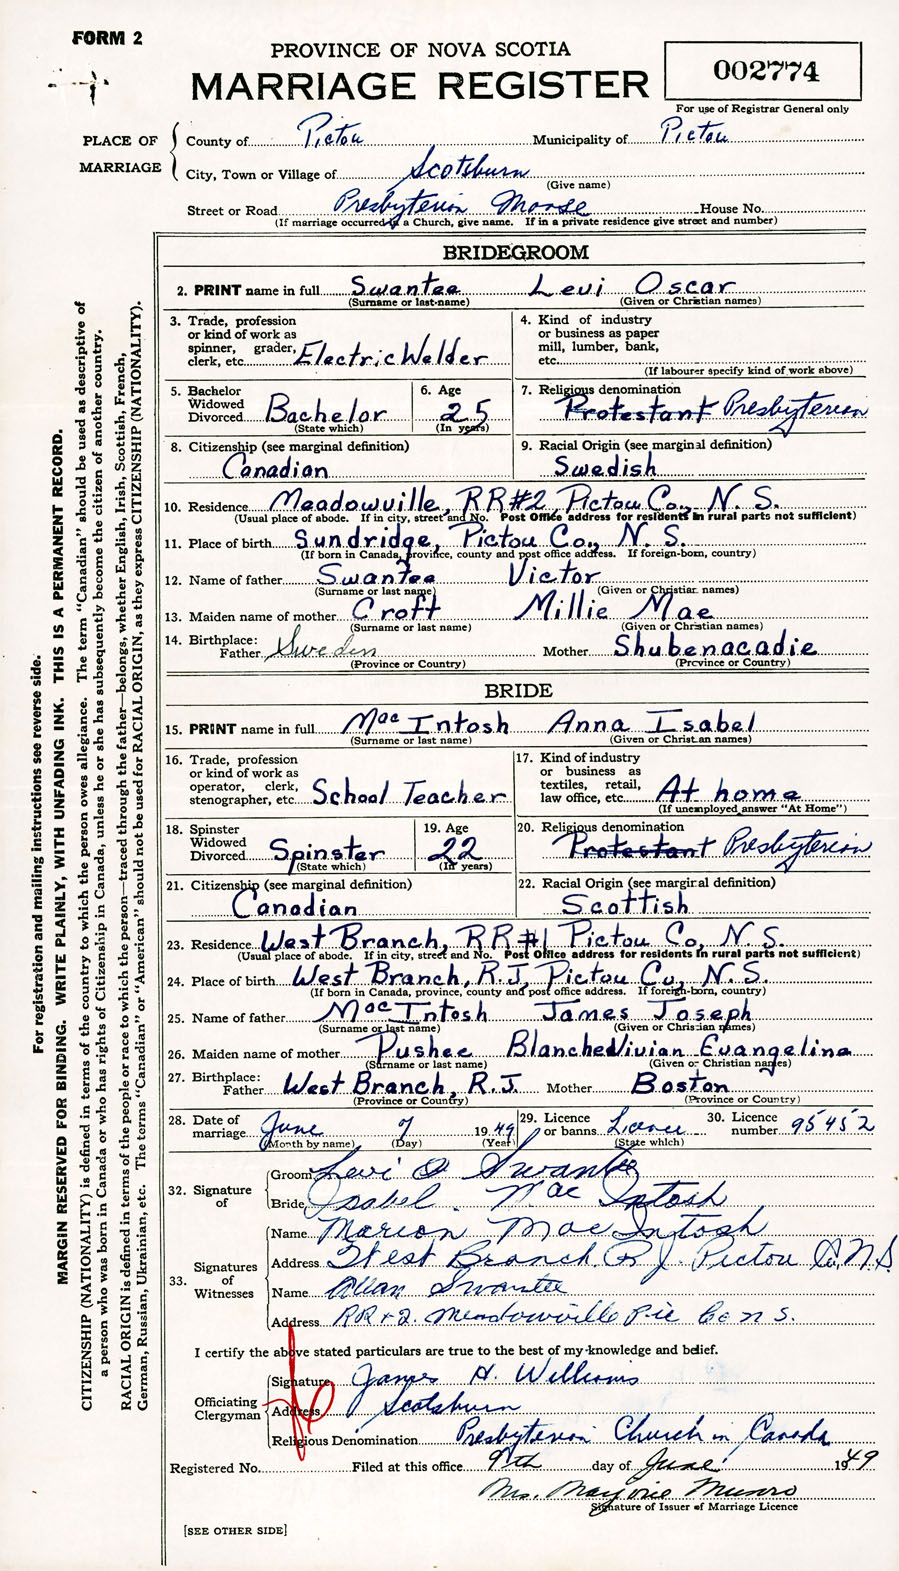 FORM 2
PROVINCE OF NOVA SCOTIA
MARRIAGE REGISTER
002774
For use of Registrar General only
PLACE OF MARRIAGE
County of Pictou Municipality of Pictou
City, Town or Village of Scotsburn
(Give name)
Street or Road Presbyterian Manse House No.
(If marriage occurred in a Church, give name. If in a private residence give street and number)
BRIDEGROOM
2. PRINT name in full Swantee Levi Oscar
(Surname or last name) (Given or Christian names)
3. Trade, profession or kind of work as spinner, grader, clerk, etc. Electric Welder
4. Kind of industry or business as paper mill, lumber, bank, etc.
(If labourer specify kind of work above)
5. Bachelor Widowed Divorced Bachelor
(State which)
6. Age 25
(In years)
7. Religious denomination Protestant Presbyterian
8. Citizenship (see marginal definition) Canadian
9. Racial Origin (see marginal definition) Swedish
10. Residence Meadowville, RR#2, Pictou Co., N.S.
(Usual place of abode. If in city, street and No. Post Office address for residents in rural parts not sufficient)
11. Place of birth Sundridge, Pictou Co., N.S.
(If born in Canada, province, county and post office address. If foreign-born, country)
12. Name of father Swantee Victor
(Surname or last name) (Given or Christian names)
13. Maiden name of mother Croft Millie Mae
(Surname or last name) (Given or Christian names)
14. Birthplace: Father Sweden Mother Shubenacadie
(Province or Country) (Province or Country)
BRIDE
15. PRINT name in full MacIntosh Anna Isabel
(Surname or last name) (Given or Christian names)
16. Trade, profession or kind of work as operator, clerk, stenographer, etc. School Teacher
17. Kind of industry or business as textiles, retail, law office, etc. At home
(If unemployed answer "At Home")
18. Spinster Widowed Divorced Spinster
(State which)
19. Age 22
(In years)
20. Religious denomination Protestant Presbyterian
21. Citizenship (see marginal definition) Canadian
22. Racial Origin (see marginal definition) Scottish
23. Residence West Branch, RR#1 Pictou Co, N.S.
(Usual place of abode. If in city, street and No. Post Office address for residents in rural parts not sufficient)
24. Place of birth West Branch, R.J., Pictou Co., N.S.
(If born in Canada, province, county and post office address. If foreign-born, country)
25. Name of father MacIntosh James Joseph
(Surname or last name) (Given or Christian names)
26. Maiden name of mother Pushee Blanche Vivian Evangeline
(Surname or last name) (Given or Christian names)
27. Birthplace: Father West Branch, R.J. Mother Boston
(Province or Country) (Province or Country)
28. Date of marriage June 7 1949
(Month by name) (Day) (Year)
29. Licence or banns Licence
(State which)
30. Licence number 95452
32. Signature of
Groom Levi O Swantee
Bride Isabel MacIntosh
33. Signatures of Witnesses
Name Marion MacIntosh
Address West Branch R.J. Pictou Co., N.S.
Name Allan Swantee
Address RR#2. Meadowville Pic Co N S.
I certify the above stated particulars are true to the best of my knowledge and belief.
Officiating Clergyman
Signature James H. Williams
Address Scotsburn
Religious Denomination Presbyterian Church in Canada
Registered No. Filed at this office 9th day of June 1949
Mrs. Marjorie Munro
Signature of Issuer of Marriage Licence
[SEE OTHER SIDE]
For registration and mailing instructions see reverse side.
MARGIN RESERVED FOR BINDING. WRITE PLAINLY, WITH UNFADING INK. THIS IS A PERMANENT RECORD.
CITIZENSHIP (NATIONALITY) is defined in terms of the country to which the person owes allegiance. The term "Canadian" should be used as descriptive of
a person who was born in Canada or who has rights of Citizenship in Canada, unless he or she has subsequently become the citizen of another country.
RACIAL ORIGIN is defined in terms of the people or race to which the person—traced through the father—belongs, whether English, Irish, Scottish, French,
German, Russian, Ukrainian, etc. The terms "Canadian" or "American" should not be used for RACIAL ORIGIN, as they express CITIZENSHIP (NATIONALITY).